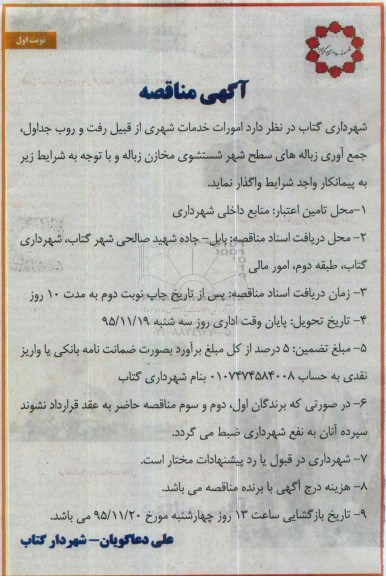 نوبت اول
آگهی مناقصه
شهرداری گتاب در نظر دارد امورات خدمات شهری از قبیل رفت و روب جداول،
جمع آوری زباله های سطح شهر شستشوی مخازن زباله و با توجه به شرایط زیر
به پیمانکار واجد شرایط واگذار نماید.
۱-محل تامین اعتبار: منابع داخلی شهرداری
۲- محل دریافت اسناد مناقصه: بابل- جاده شهید صالحی شهر گتاب، شهرداری
گتاب، طبقه دوم، امور مالی
۳- زمان دریافت اسناد مناقصه: پس از تاریخ چاپ نوبت دوم به مدت ۱۰ روز
۴- تاریخ تحویل: پایان وقت اداری روز سه شنبه ۹۵/۱۱/۱۹
۵- مبلغ تضمین: ۵ درصد از کل مبلغ برآورد بصورت ضمانت نامه بانکی یا واریز
نقدی به حساب ۰۱۰۷۴۷۴۵۸۴۰۰۸ بنام شهرداری گتاب
۶- در صورتی که برندگان اول، دوم و سوم مناقصه حاضر به عقد قرارداد نشوند
سپرده آنان به نفع شهرداری ضبط می گردد.
۷- شهرداری در قبول یا رد پیشنهادات مختار است.
۸- هزینه درج آگهی با برنده مناقصه می باشد.
۹- تاریخ بازگشایی ساعت ۱۳ روز چهارشنبه مورخ ۹۵/۱۱/۲۰ می باشد.
علی دعاگویان- شهردار گتاب